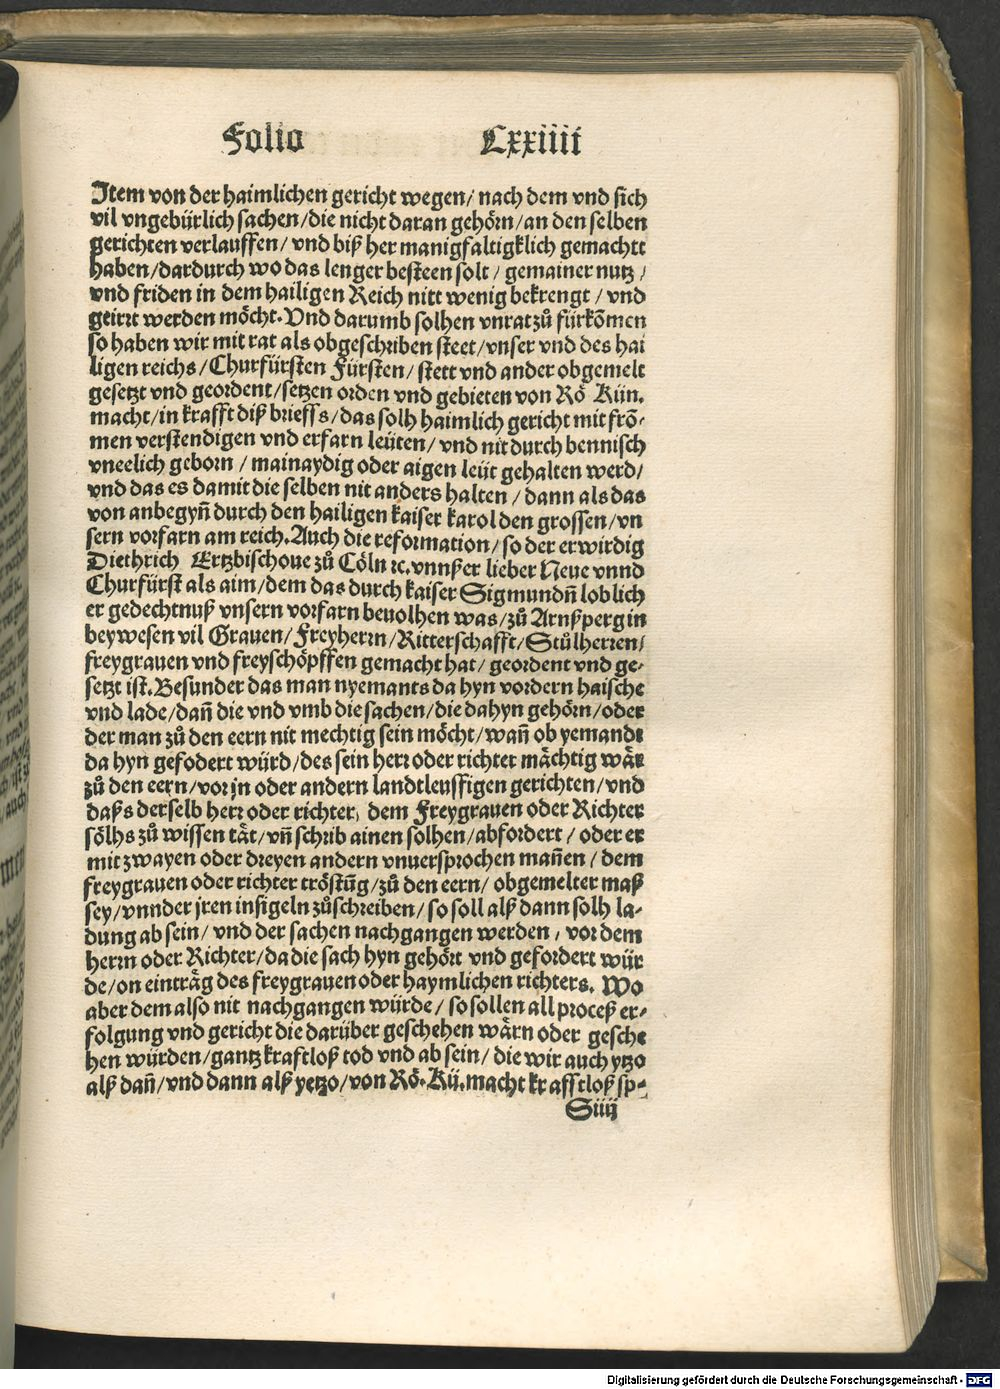 Folio Cxxiiii
Item von der haimlichen gericht wegen/ nach dem vnd sich
vil vngebürlich sachen/die nicht daran gehörn/an den selben
gerichten verlauffen/ vnd biß her manigfaltigklich gemachtt
haben/dardurch wo das lenger besteen solt/ gemainer nutz/
vnd friden in dem hailigen Reich nitt wenig bekrengt/ vnd
geirrt werden möcht. Vnd darumb solhen vnrat zů fürkõmen
so haben wir mit rat als obgeschriben steet/vnser vnd des hai
ligen reichs/Churfürsten Fürsten/ stett vnd ander obgemelt
gesetzt vnd geordent/setzen orden vnd gebieten von Rö Kün.
macht/in krafft diß brieffs/das solh haimlich gericht mit frõ-
men verstendigen vnd erfarn leüten/ vnd nit durch bennisch
vneelich geborn/ mainaydig oder aigen leüt gehalten werd/
vnd das es damit die selben nit anders halten/ dann als das
von anbegyñ durch den hailigen kaiser karol den grossen/vn
sern vorfarn am reich. Auch die reformation/so der erwirdig
Diethrich Ertzbischoue zů Cöln ꝛc. vnnßer lieber Neue vnnd
Churfürst als aim/dem das durch kaiser Sigmundñ loblich
er gedechtnuß vnsern vorfarn beuolhen was/zů Arnßperg in
beywesen vil Grauen/Freyherrn/Ritterschafft/Stůlherren/
freygrauen vnd freyschöpffen gemacht hat/ geordent vnd ge-
setzt ist. Besunder das man nyemants da hyn vordern haische
vnd lade/dañ die vnd vmb die sachen/die dahyn gehörn/oder
der man zů den eern nit mechtig sein möcht/wañ ob yemandt
da hyn gefodert würd/des sein herr oder richter mächtig wär
zů den eern/vor jn oder andern landtleuffigen gerichten/vnd
daßs derselb herr oder richter, dem Freygrauen oder Richter
sölhs zů wissen tät/vñ schrib ainen solhen/abfordert/ oder er
mit zwayen oder dreyen andern vnuersprochen mañen/ dem
freygrauen oder richter tröstũg/zů den eern/ obgemelter maß
sey/vnnder jren insigeln zůschreiben/so soll alß dann solh la-
dung ab sein/ vnd der sachen nachgangen werden/ vor dem
herrn oder Richter/da die sach hyn gehört vnd gefordert wür
de/on einträg des freygrauen oder haymlichen richters. Wo
aber dem also nit nachgangen würde/ so sollen all proceß er-
folgung vnd gericht die darüber geschehen wärn oder gesche
hen würden/gantz kraftloß tod vnd ab sein/ die wir auch ytzo
alß dañ/vnd dann alß yetzo/von Rö. Kü. macht krafftloß sp-
Siiij
Digitalisierung gefördert durch die Deutsche Forschungsgemeinschaft - DFG